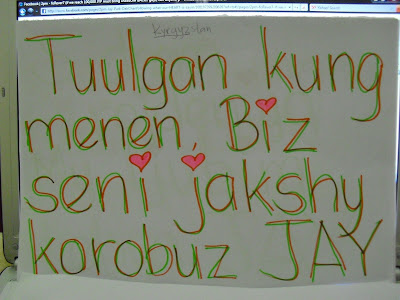 Kyrgyzstan
Tuulgan kung
menen, Biz
seni jakshy
korobuz JAY